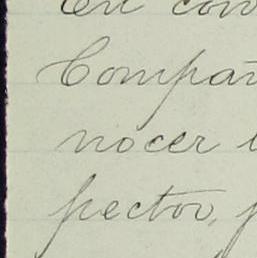 En con
Compañ
nocer
pector, p